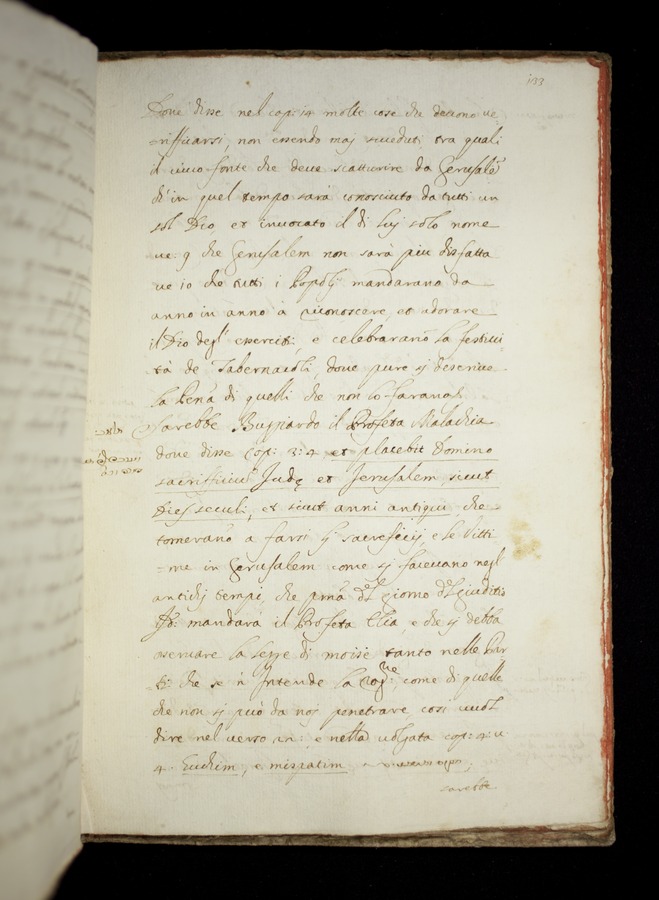 133
Dove disse nel cap: 14 molte cose che devono ve=
rifficarsi, non essendo maj sucedute tra quali
il vivo fonte che deve scatturire da Gerusalē
ch'in quel tempo sarà conosciuto da tutti un
sol Dio, et invocato il di luj solo nome
ve: 9 che Gerusalem non sarà piu disfatta
ve 10 che tutti i Popolj mandarano da
anno in anno à riconoscere, et adorare
il Dio degl' esserciti, e celebrarano la festivi
tà de Tabernacoli, dove pure si descrive
la Pena di quelli che non lo farano.
Sarebbe Buggiardo il Profeta Malachia
dove disse Cap: 3: 4 et placebit Domino
sacrifficiū Judę et Jerusalem sicut
Dies seculi, et sicut anni antiqui, che
tornerano a farsi li sacreficij e le Vitti
=me in Gerusalem come si facevano negl
antichi tempi, che prma del giorno del giuditio
Id: mandarà il Profeta Elia, e che si debba
osservare la legge di moisè tanto nelle Par
ti: che se n' Intende la come di quelle
che non si può da noj penetrare, cosi vuol
dire nel verso e nella volgata cap: 4: v
4. Euchim, e mispatim
sarebbe